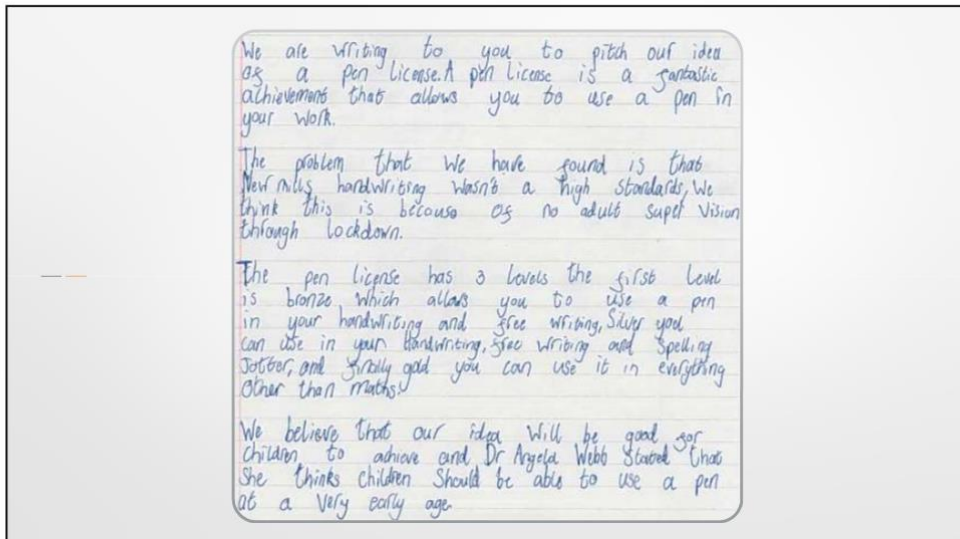 We are writing to you to pitch our idea
of a pen license. A pen license is a fantastic
achievement that allows you to use a pen in
your work.
The problem that we have found is that
New mills handwriting wasn't a high standards, we
think this is because of no adult super vision
through lockdown.
The pen license has 3 levels the first level
is bronze which allows you to use a pen
in your handwriting and free writing, Silver you
can use in your handwriting, free writing and spelling
Jotter, and finally gold you can use it in everything
other than maths.
We believe that our idea will be good for
children to achieve and Dr Angela Webb stated that
she thinks children should be able to use a pen
at a very early age.